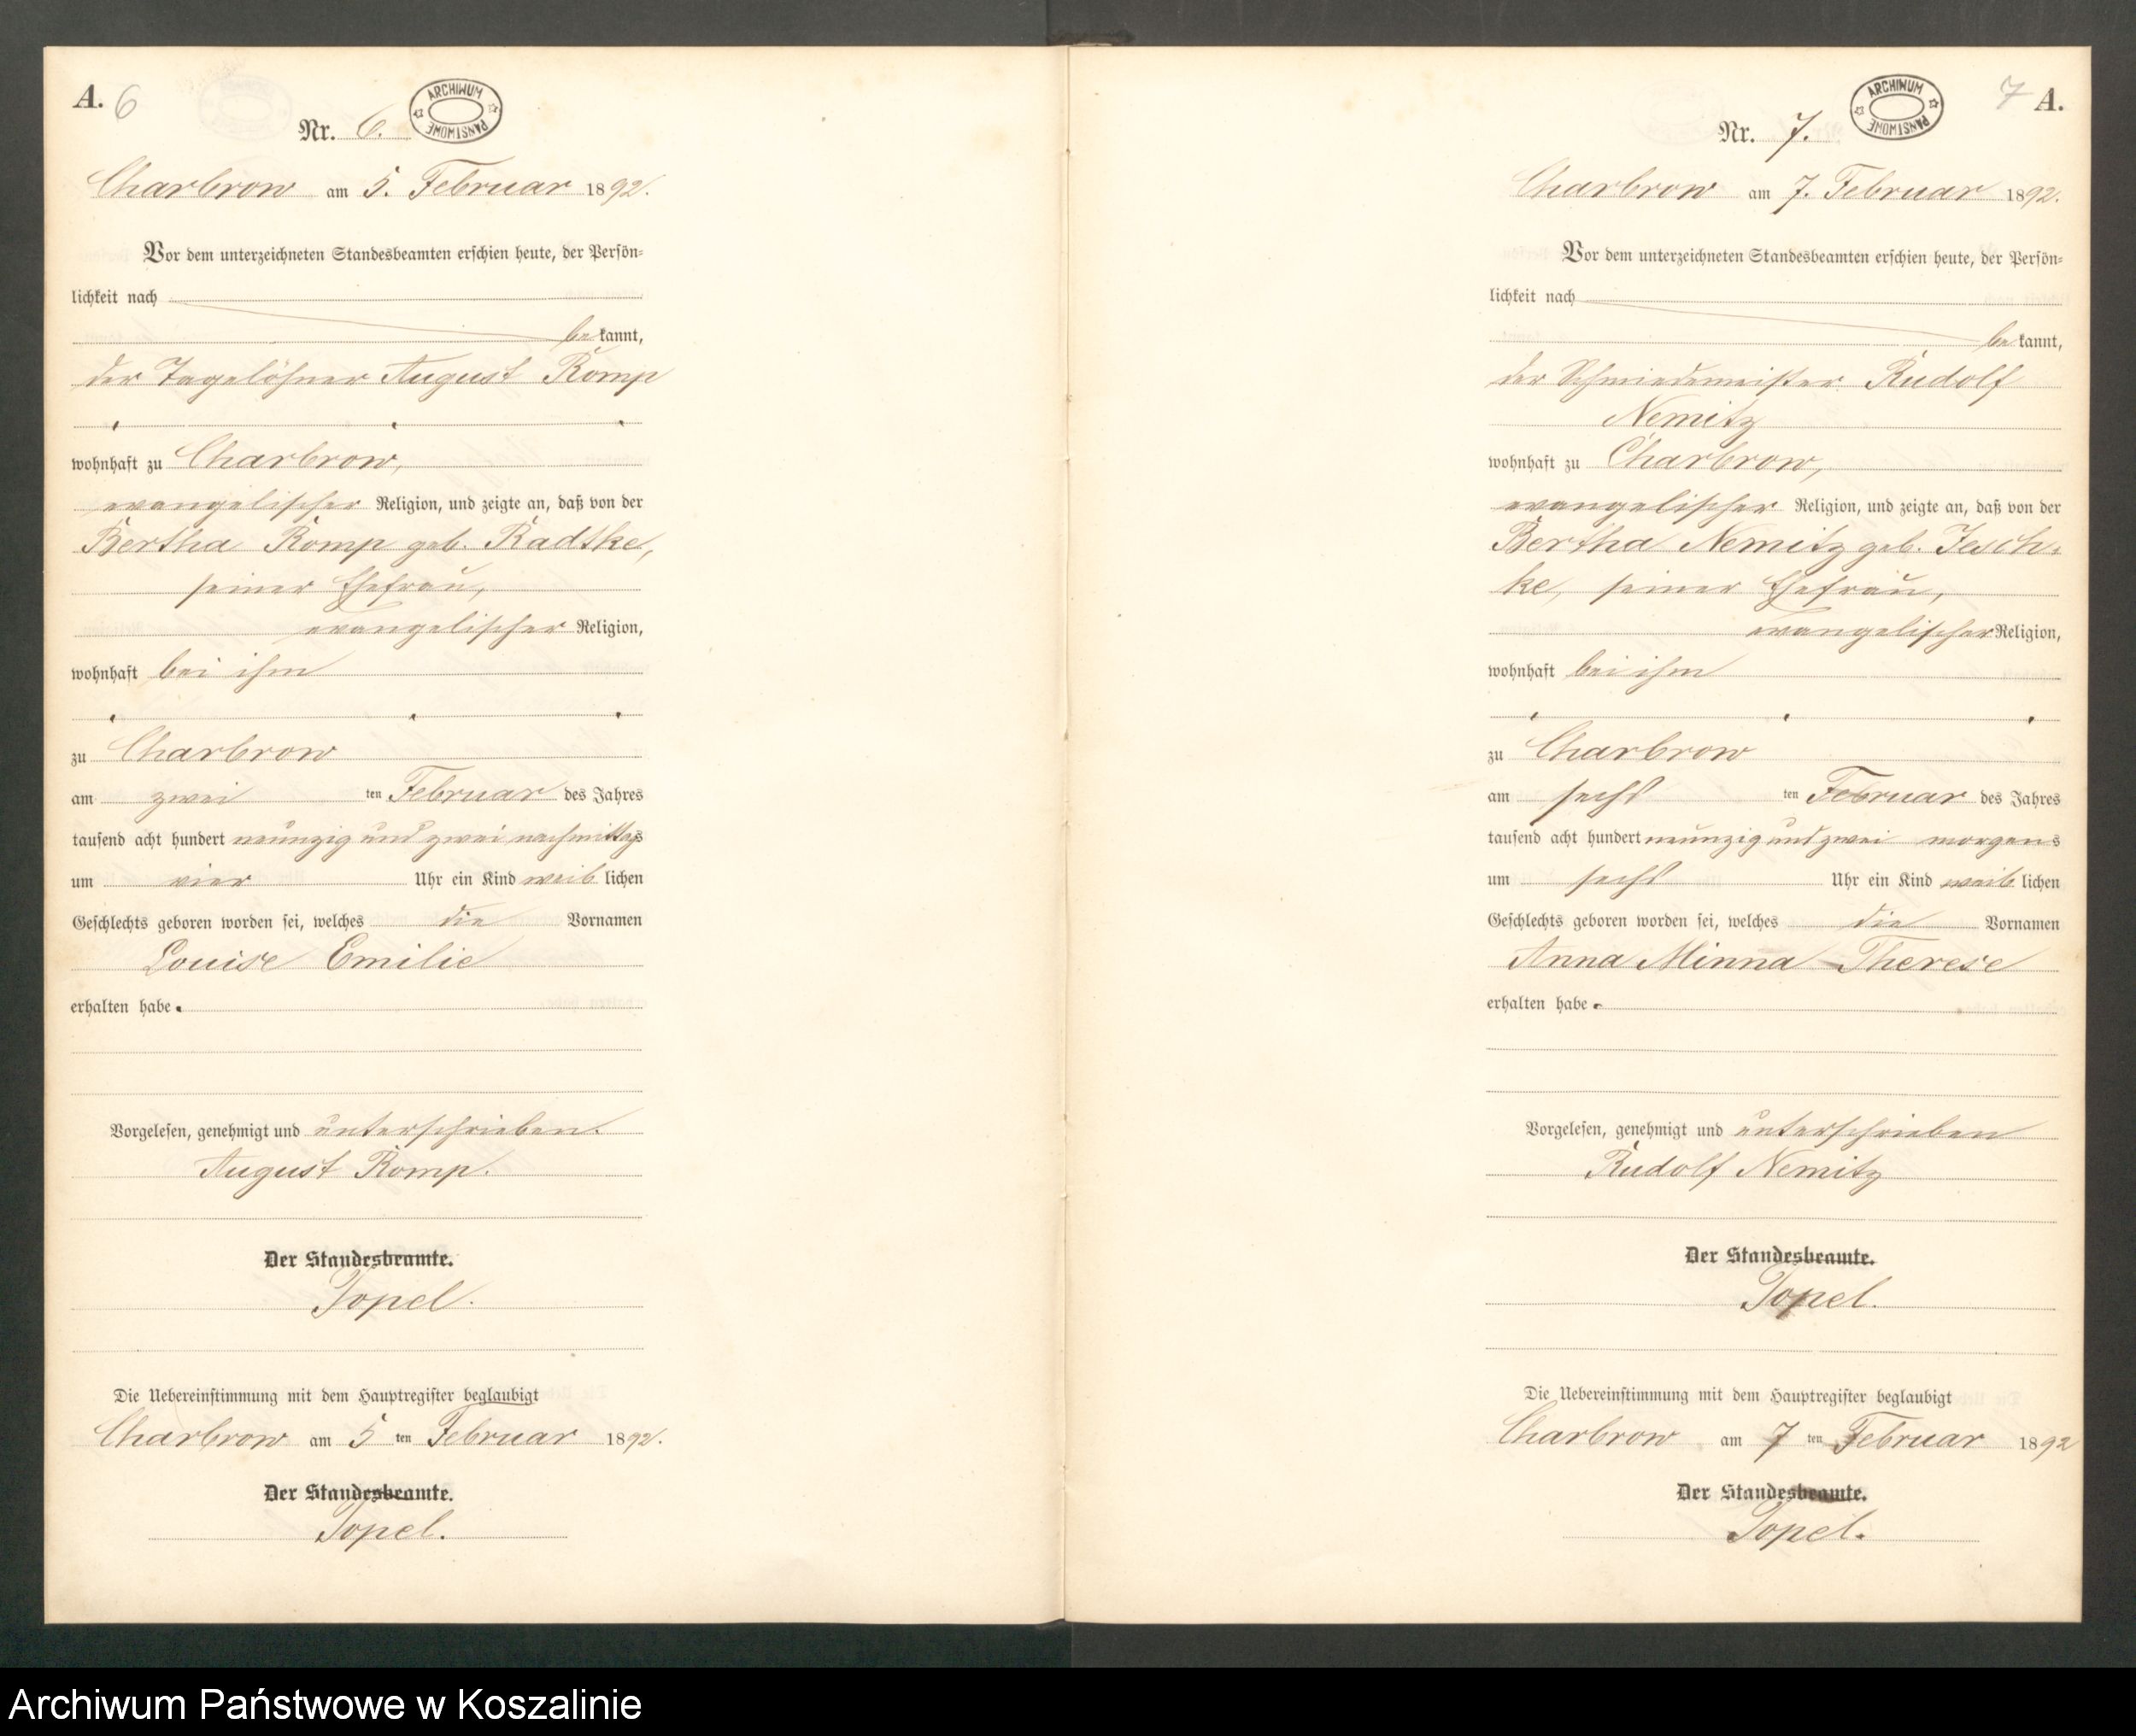 A. 6
ARCHIWUM PAŃSTWOWE
Nr. 6.
Charbrow am 5. Februar 1892.
Vor dem unterzeichneten Standesbeamten erschien heute, der Persön-
lichkeit nach
bekannt,
der Tagelöhner August Romp
wohnhaft zu Charbrow,
evangelischer Religion, und zeigte an, daß von der
Bertha Romp geb. Radtke,
seiner Ehefrau,
evangelischer Religion,
wohnhaft bei ihm
zu Charbrow
am zwei ten Februar des Jahres
tausend acht hundert neunzig und zwei nachmittags
um vier Uhr ein Kind weiblichen
Geschlechts geboren worden sei, welches die Vornamen
Louise Emilie
erhalten habe.
Vorgelesen, genehmigt und unterschrieben.
August Romp.
Der Standesbeamte.
Topel.
Die Uebereinstimmung mit dem Hauptregister beglaubigt
Charbrow am 5 ten Februar 1892.
Der Standesbeamte.
Topel.
7 A.
ARCHIWUM PAŃSTWOWE
Nr. 7.
Charbrow am 7. Februar 1892.
Vor dem unterzeichneten Standesbeamten erschien heute, der Persön-
lichkeit nach
bekannt,
der Schmiedemeister Rudolf
Nemitz
wohnhaft zu Charbrow,
evangelischer Religion, und zeigte an, daß von der
Bertha Nemitz geb. Jesch-
ke, seiner Ehefrau,
evangelischer Religion,
wohnhaft bei ihm
zu Charbrow
am sechs ten Februar des Jahres
tausend acht hundert neunzig und zwei morgens
um sechs Uhr ein Kind weiblichen
Geschlechts geboren worden sei, welches die Vornamen
Anna Minna Therese
erhalten habe
Vorgelesen, genehmigt und unterschrieben
Rudolf Nemitz
Der Standesbeamte.
Topel.
Die Uebereinstimmung mit dem Hauptregister beglaubigt
Charbrow am 7 ten Februar 1892
Der Standesbeamte.
Topel.
Archiwum Państwowe w Koszalinie